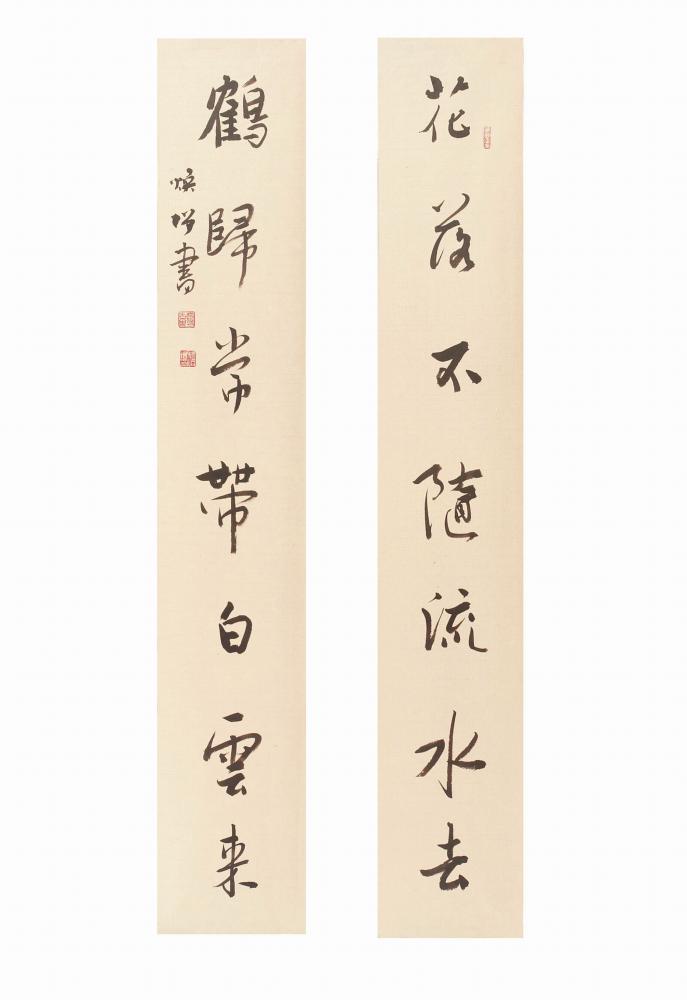 花落不随流水去
鶴歸常帶白雲来
煥 書